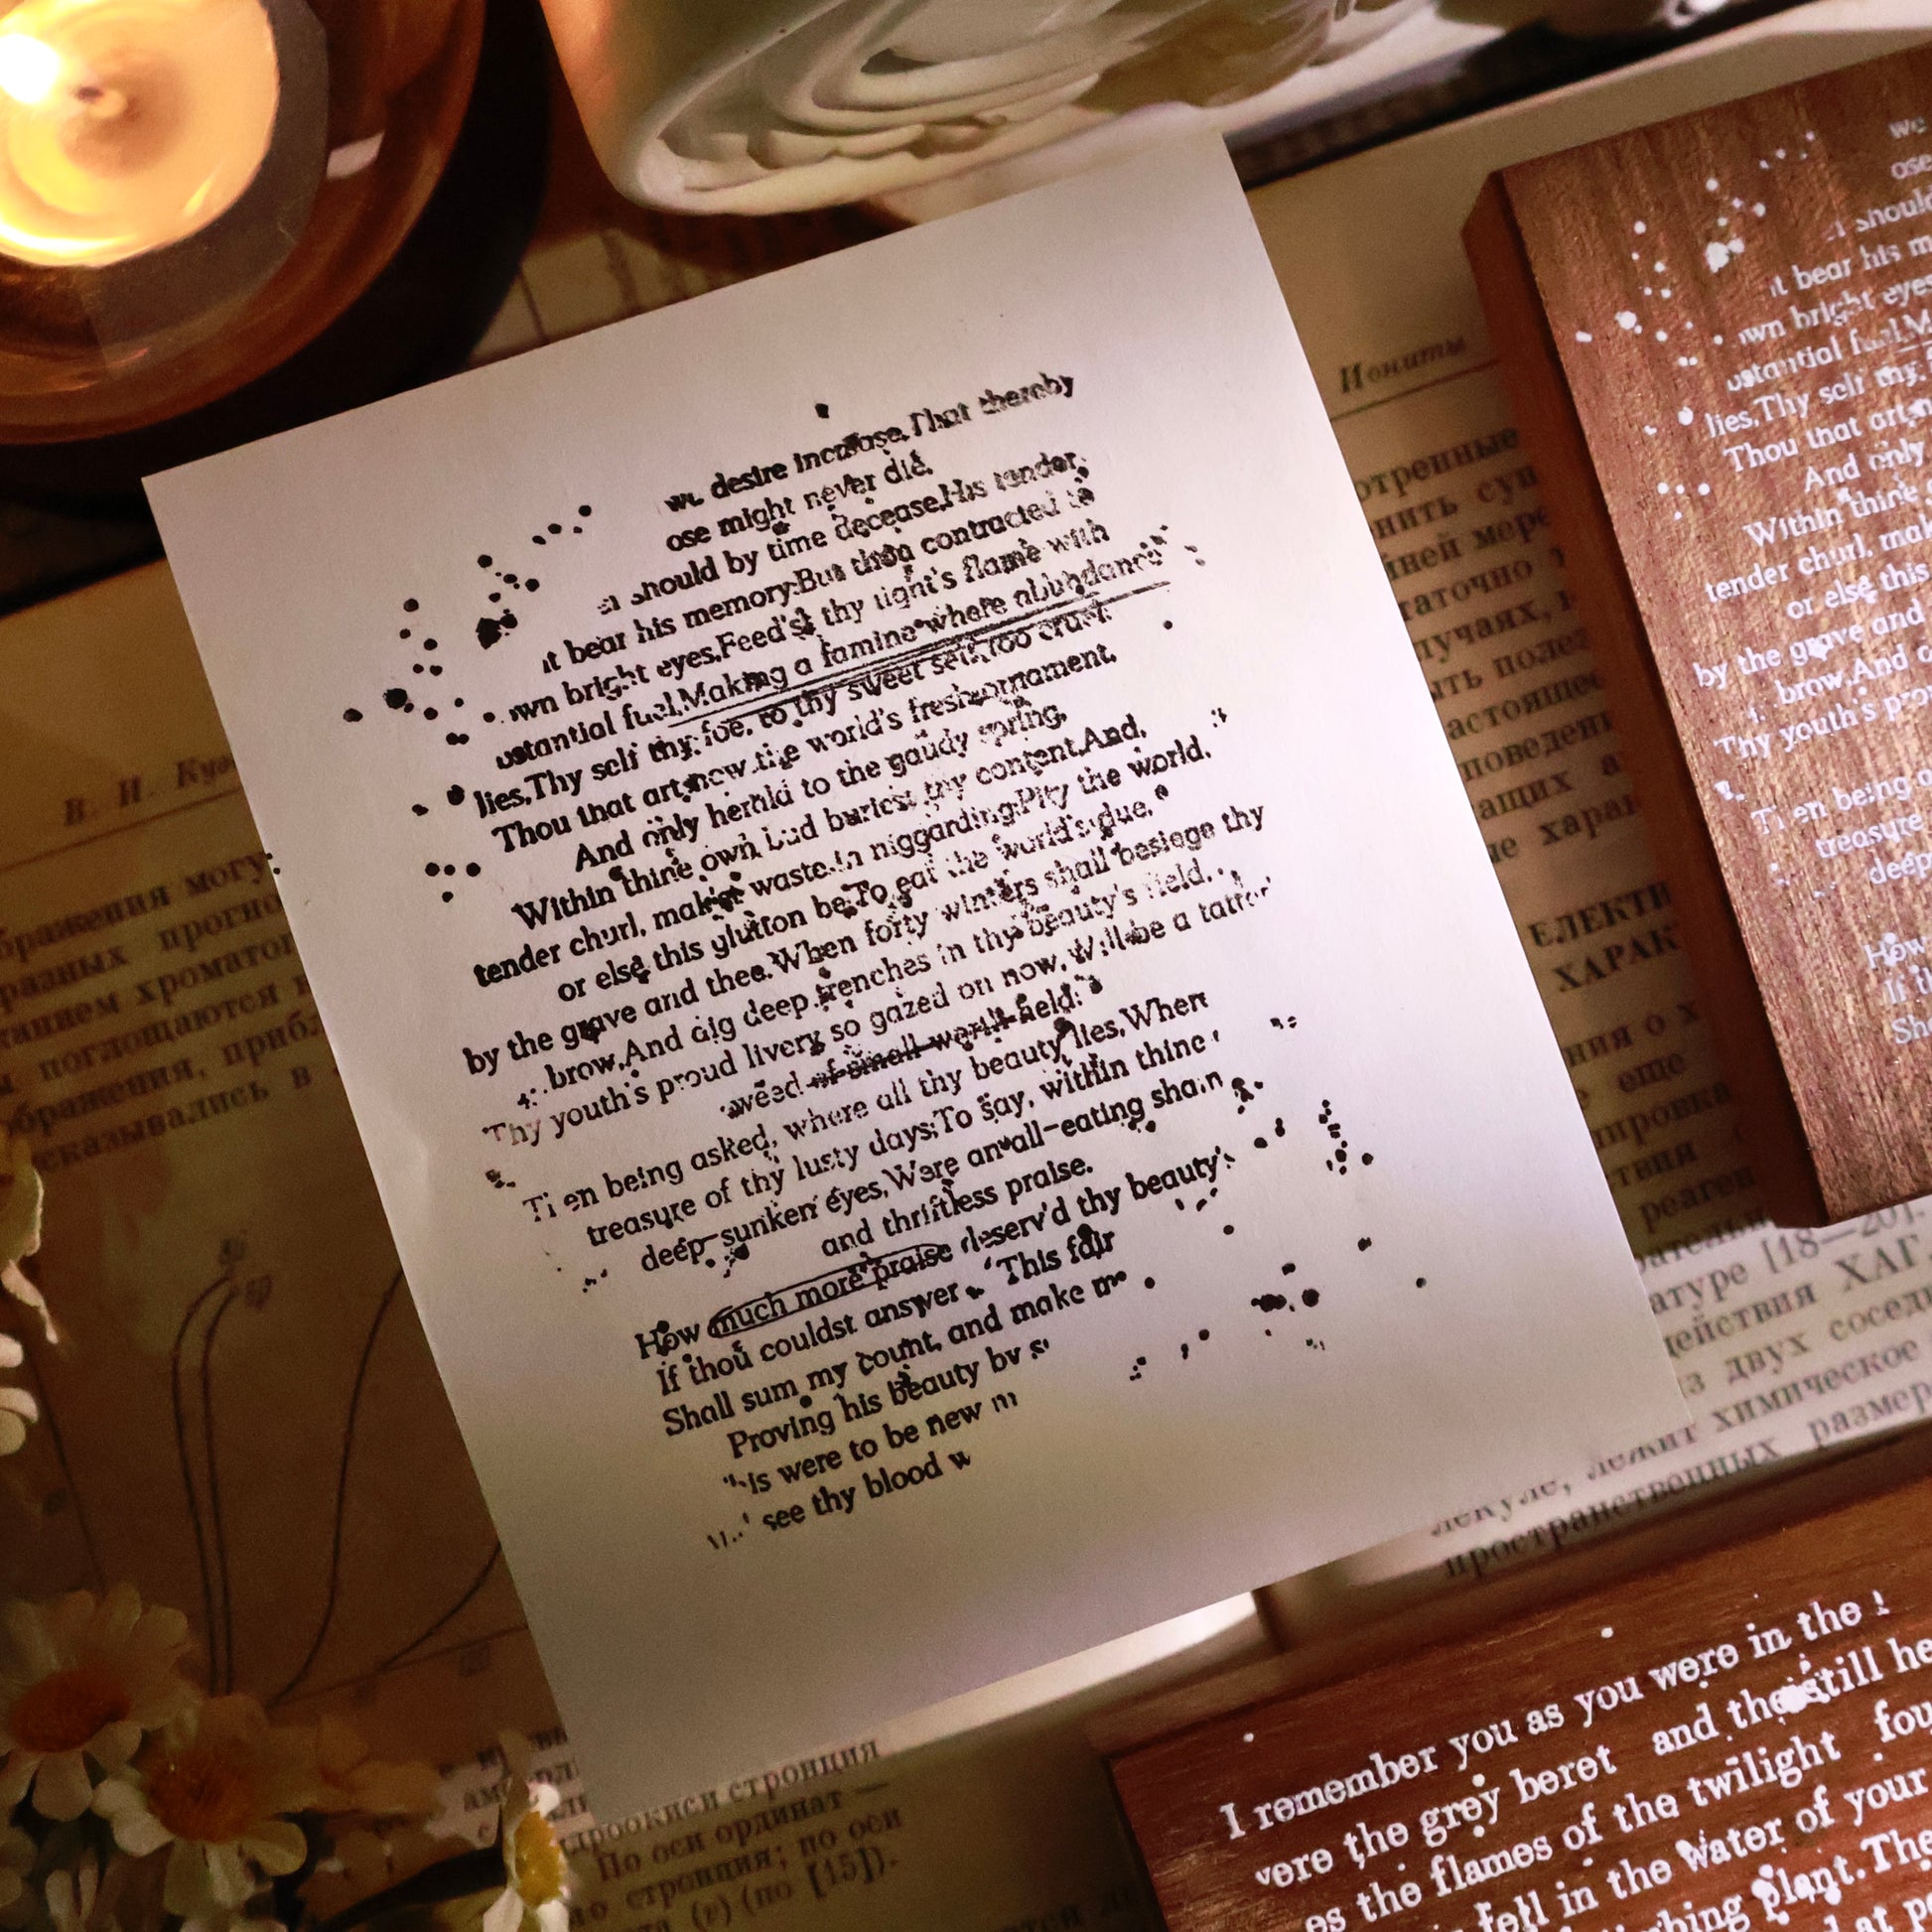 desire increase.That thereby
ose might never die.
should by time decease.His tender
bear his memory:But thou contracted to
own bright eyes.Feed'st thy light's flame with
ustantial fuel,Making a famine where abundance
lies,Thy self thy foe, to thy sweet self too cruel:
Thou that art now the world's fresh ornament,
And only herald to the gaudy spring,
Within thine own bud buriest thy content,And,
tender churl, mak'st waste in niggarding:Pity the world,
or else this glutton be,To eat the world's due,
by the grave and thee.When forty winters shall besiege thy
brow,And dig deep trenches in thy beauty's field,
Thy youth's proud livery so gazed on now,Will be a tatter
weed of small worth held:
Then being asked, where all thy beauty lies,Where
treasure of thy lusty days;To say, within thine
deep-sunken eyes,Were an all-eating sham
and thriftless praise.
How much more praise deserv'd thy beauty's
If thou couldst answer 'This fair
Shall sum my count, and make m
Proving his beauty by s
his were to be new m
see thy blood w
Иониты
отренные
нить суп
йней мере
таточно
лучаях,
ыть полез
астоящее
поведени
ащих а
ые харак
ЕЛЕКТИ
ХАРАК
ния о х
еще
ировка
ствия
реаген
ратуре [18—20].
действия ХАГ
из двух сосед
химическое
лекуле, лежит
пространственных размер
В. И. Куз
бражения могу
разных прогно
танием хроматог
ы поглощаются
ображения, прибл
сказывались в
дроокиси стронция
По оси ординат —
стронция; по оси
(г) (по [15]).
we
ose
should
it bear his m
own bright eyes
ustantial fuel,M
lies,Thy self thy
Thou that art
And only
Within thine
tender churl, mak
or else this
by the grave and
brow,And d
Thy youth's pro
Ti en being a
treasure
deep
How
If t
Sh
I remember you as you were in the l
vere the grey beret and the still he
es the flames of the twilight fou
fell in the Water of your
bing plant.The